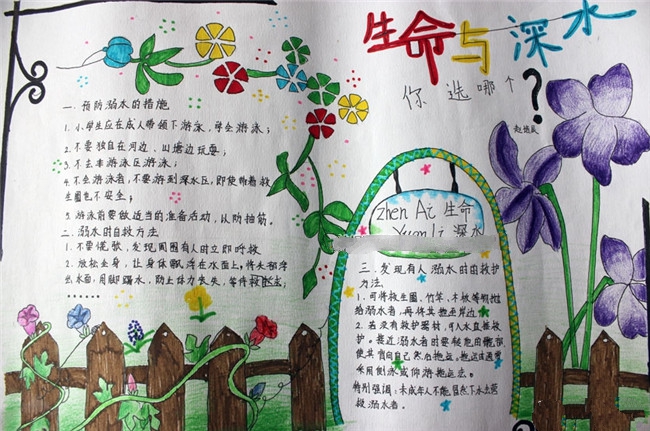 生命与深水
你选哪个?
一.预防溺水的措施
1.小学生应在成人带领下游泳,学会游泳;
2.不要独自在河边、山塘边玩耍;
3.不去非游泳区游泳;
4.不会游泳者,不要游到深水区,即使带着救
生圈也不安全;
5.游泳前要做适当的准备活动,以防抽筋。
二.溺水的自救方法
1.不要慌张,发现周围有人时立即呼救
2.放松全身,让身体飘浮在水面上,将头部浮
出水面,用脚踢水,防止体力丧失,等待救援;
......
zhen Ai 生命
Yuan Li 深水
三.发现有人溺水时的救护
方法.
1.可将救生圈、竹竿、木板等物抛
给溺水者,再将其拖至岸边;
2.若没有救护器材,可入水直接救
护。接近溺水者时要
使其背向自己
采用侧泳或仰游拖运法。
特别强调:未成年人不能
救溺水者。